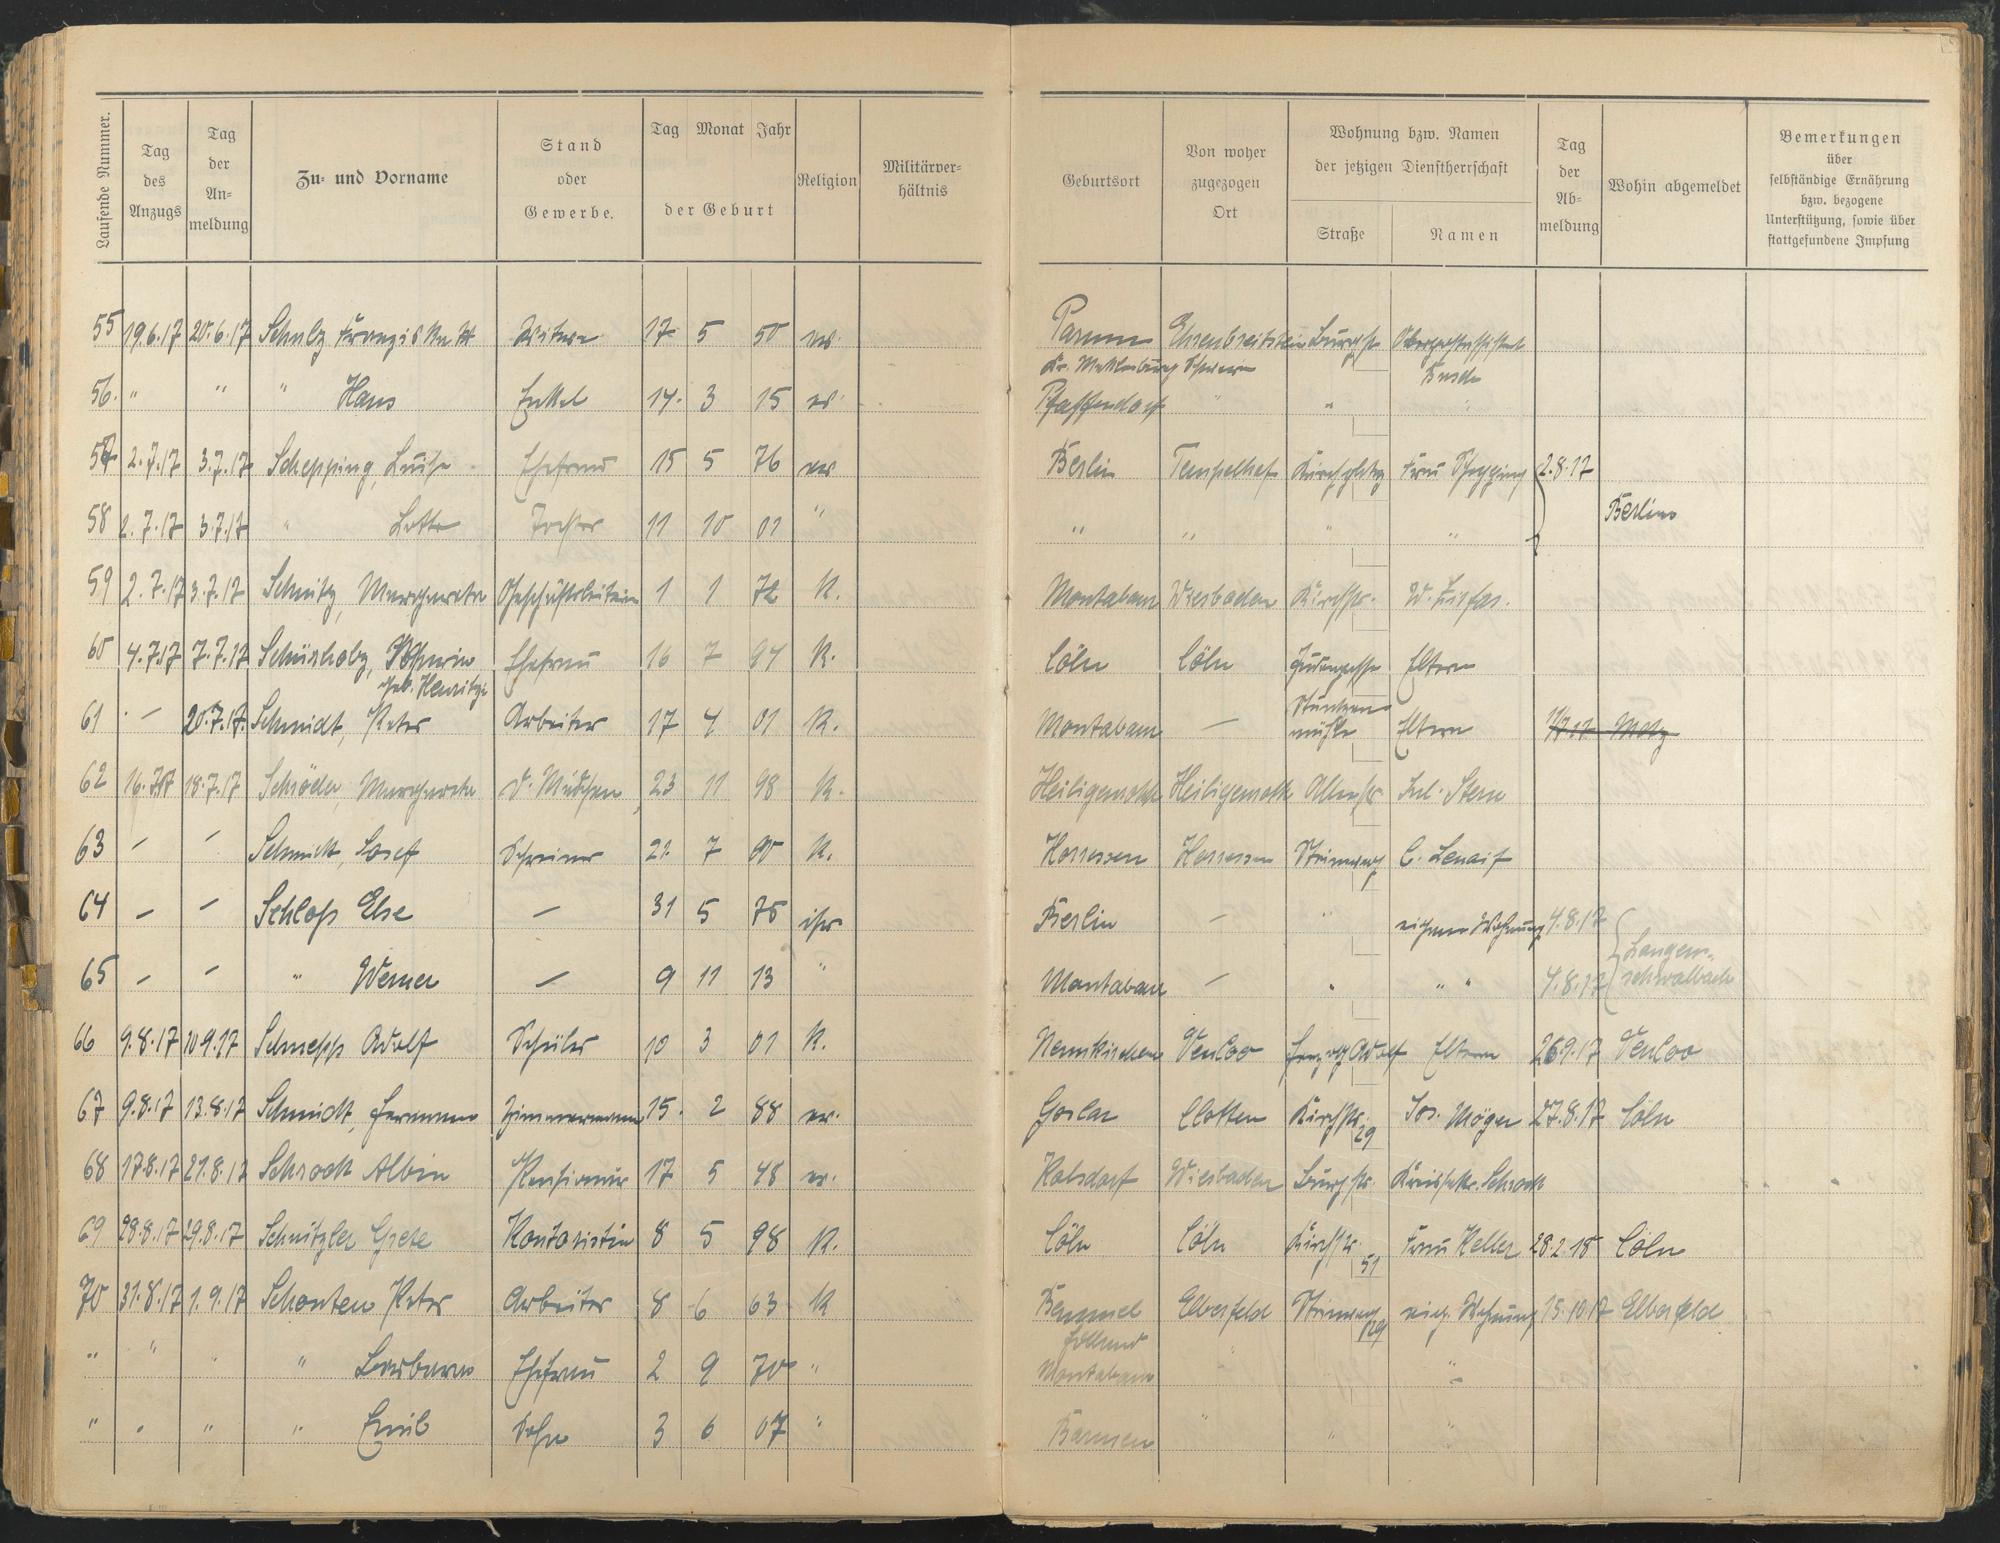 Laufende Nummer.
Tag des Anzugs
Tag der Anmeldung
Zu- und Vorname
Stand oder Gewerbe.
Tag Monat Jahr der Geburt
Religion
Militärverhältnis
Geburtsort
Von woher zugezogen Ort
Wohnung bzw. Namen der jetzigen Dienstherrschaft
Straße
Namen
Tag der Abmeldung
Wohin abgemeldet
Bemerkungen über selbständige Ernährung bzw. bezogene Unterstützung, sowie über stattgefundene Impfung
55 19.6.17 20.6.17 Schulz 17 5 50 ev. Parum Ehrenbreitstein Burgstr.
56. " " " Hans Enkel 14. 3 15 ev. Pfaffendorf " " "
57 2.7.17 3.7.17 Schepping, Luise Ehefrau 15 5 76 ev. Berlin Tempelhof Frau Schepping 2.8.17
58 2.7.17 3.7.17 " Lotte Tochter 11 10 01 " " " " " Berlin
59 2.7.17 3.7.17 Schmitz, Margareta 1 1 72 K. Montabaur Wiesbaden Kirchstr.
60 4.7.17 7.7.17 Schürholz, Ehefrau 16 7 94 K. Cöln Cöln Judengasse Eltern
geb. Henritzi
61 – 20.7.17. Schmidt, Peter Arbeiter 17 4 01 K. Montabaur – Eltern Metz
62 16.7.17 18.7.17 Schröder, Margareta D. Mädchen 23 11 98 K. Heiligenroth Heiligenroth Allee str. Jul. Stern
63 – – Schmidt, Josef Schreiner 21. 7 90 K. Horressen Horressen Steinweg
64 – – Schloß Else – 31 5 75 isr. Berlin – " eigene Wohnung 4.8.17 Langen-
65 – – " Werner – 9 11 13 " Montabaur – " " " 4.8.17 schwalbach
66 9.8.17 10.9.17 Schnepp Adolf Schüler 10 3 01 K. Neunkirchen Venloo Herzog Adolf Eltern 26.9.17 Venloo
67 9.8.17 13.8.17 Schmidt, Hermann Zimmermann 15. 2 88 ev. Goslar Clotten Kirchstr. 29 Jos. Möger 27.8.17 Cöln
68 17.8.17 21.8.17 Schrock Albin Pensionär 17 5 48 ev. Wiesbaden Burgstr. Kreissekr. Schrock
69 28.8.17 29.8.17 Schnitzler Grete Kontoristin 8 5 98 K. Cöln Cöln Kirchstr. 51 Frau Keller 28.2.18 Cöln
70 31.8.17 1.9.17 Schouten Peter Arbeiter 8 6 63 K Bemmel Elberfeld Steinweg 29 eig. Wohnung 15.10.17 Elberfeld
Holland
" " " " Barbara Ehefrau 2 9 70 " Montabaur " "
" " " " Emil Sohn 3 6 07 " Barmen " " "